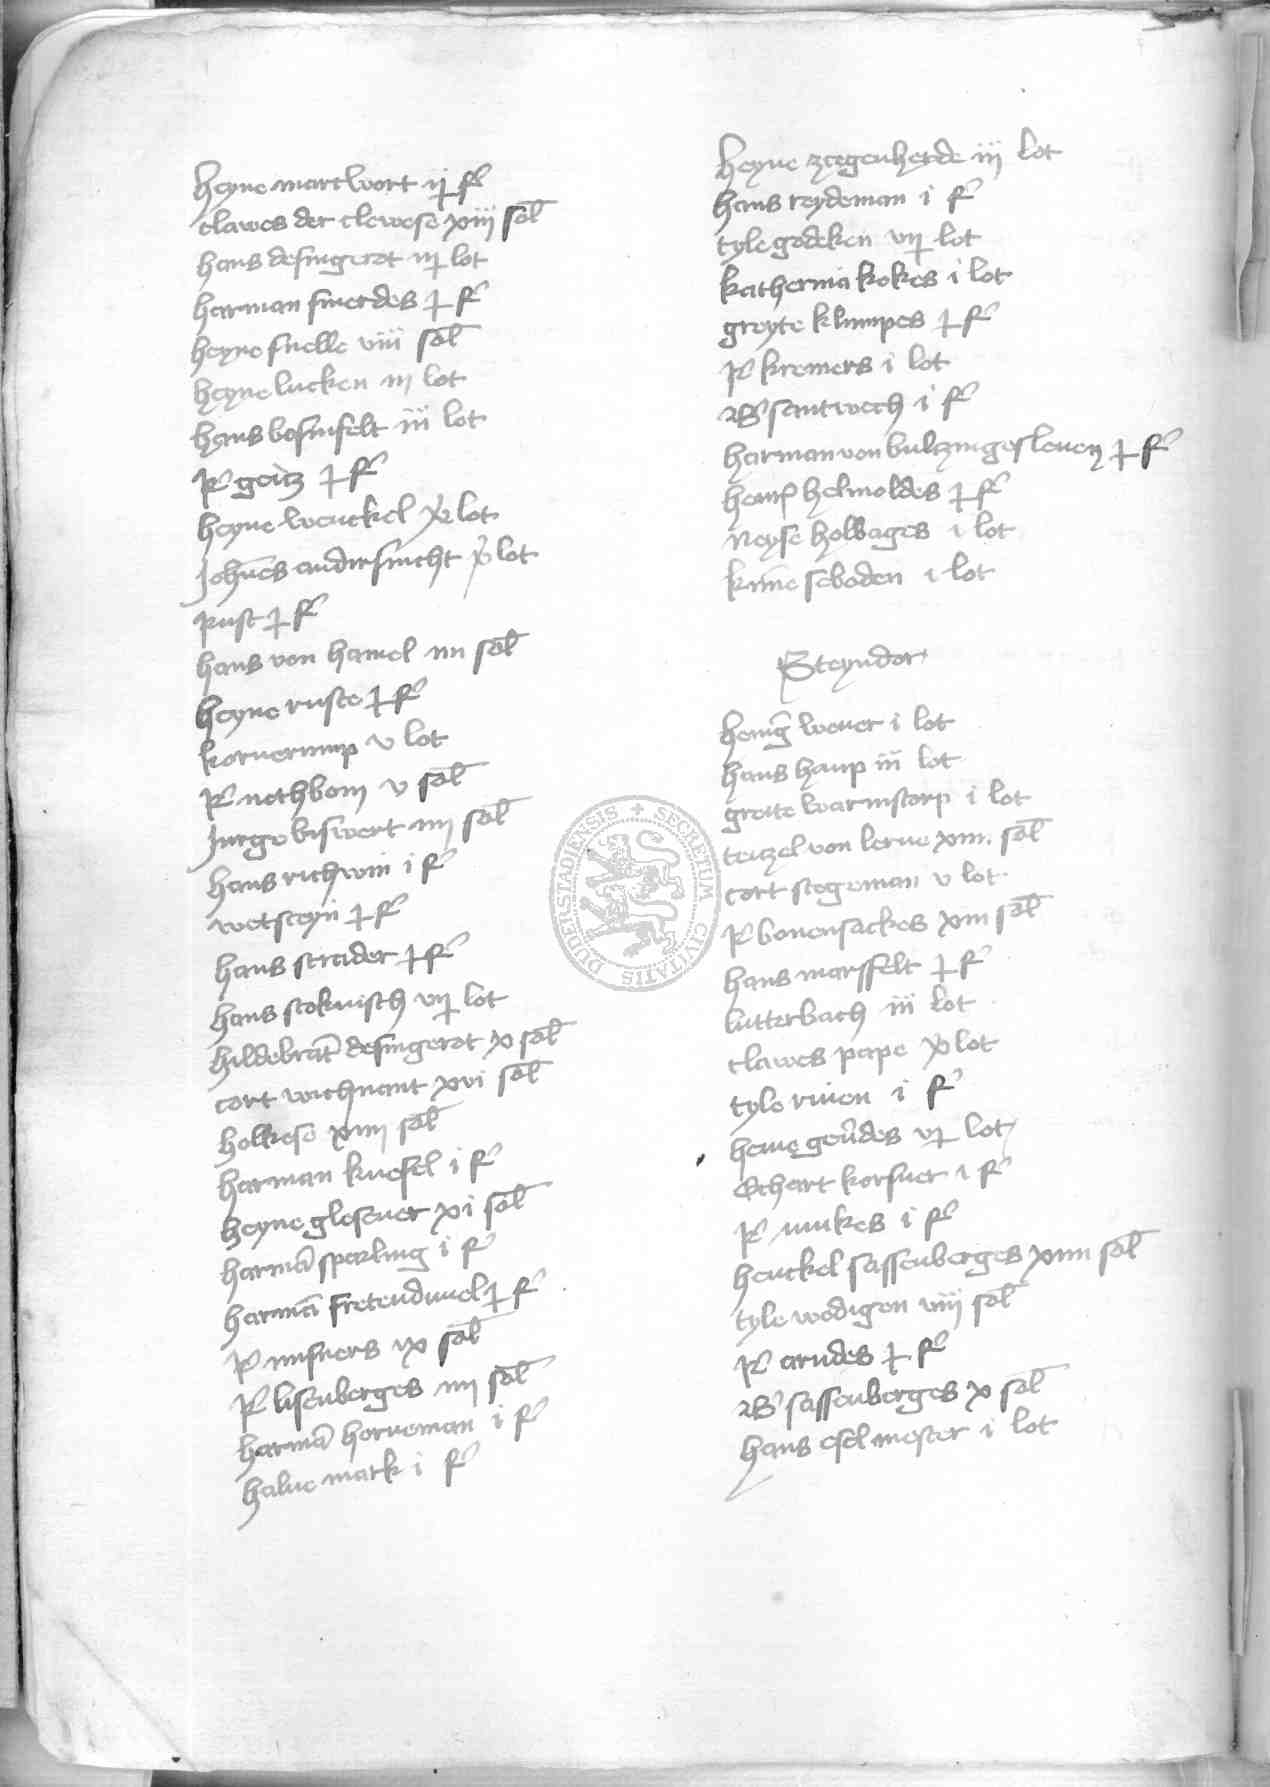 heyne martwort ij f
clawes der clewese xiij sol
hans desingerot iij lot
harman smerdes f
heyne snelle viii sol
heyne lucken iij lot
hans bosinfelt iii lot
geitz f
heyne wenckel lot
Johnes andirfincht lot
rust f
hans von hamel iiii sol
heyne ruste f
korverump v lot
nethbom v sol
Jurge biswert iiij sol
hans richwin i f
wetsteyn f
hans strader f
hans stokvisch vij lot
hildebrat desingerot x sol
cort wichnant xvi sol
holkese xiiij sol
harman knefel i f
heyne glesener xi sol
harma sperling i f
harma fretenduvel f
sol
lisenberges iiij sol
harma horneman i f
halve mark i f
heyne zcegenherde iij lot
hans reydeman i f
tyle godeken vij lot
katherina kokes i lot
greyte klumpes f
kremers i lot
santwech i f
harman von bultzingesleven f
helmoldes f
neyse holbages i lot
seboden i lot
Steyndor
wever i lot
hans haup iii lot
greite warmstorp i lot
teitzel von lerne xiii. sol
cort stegeman v lot
bonensackes xiii sol
hans marsfelt f
lutterbach iii lot
clawes pape lot
tyle i f
lot
Echart korsner i f
i f
henckel sassenberges xiiii sol
tyle wodigen viiij sol
arndes f
sassenberges x sol
hans eselmester i lot
SECRETUM CIVITATIS DUDERSTADIENSIS